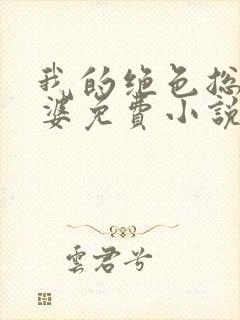 我的绝色总
婆免費小說
雲君兮